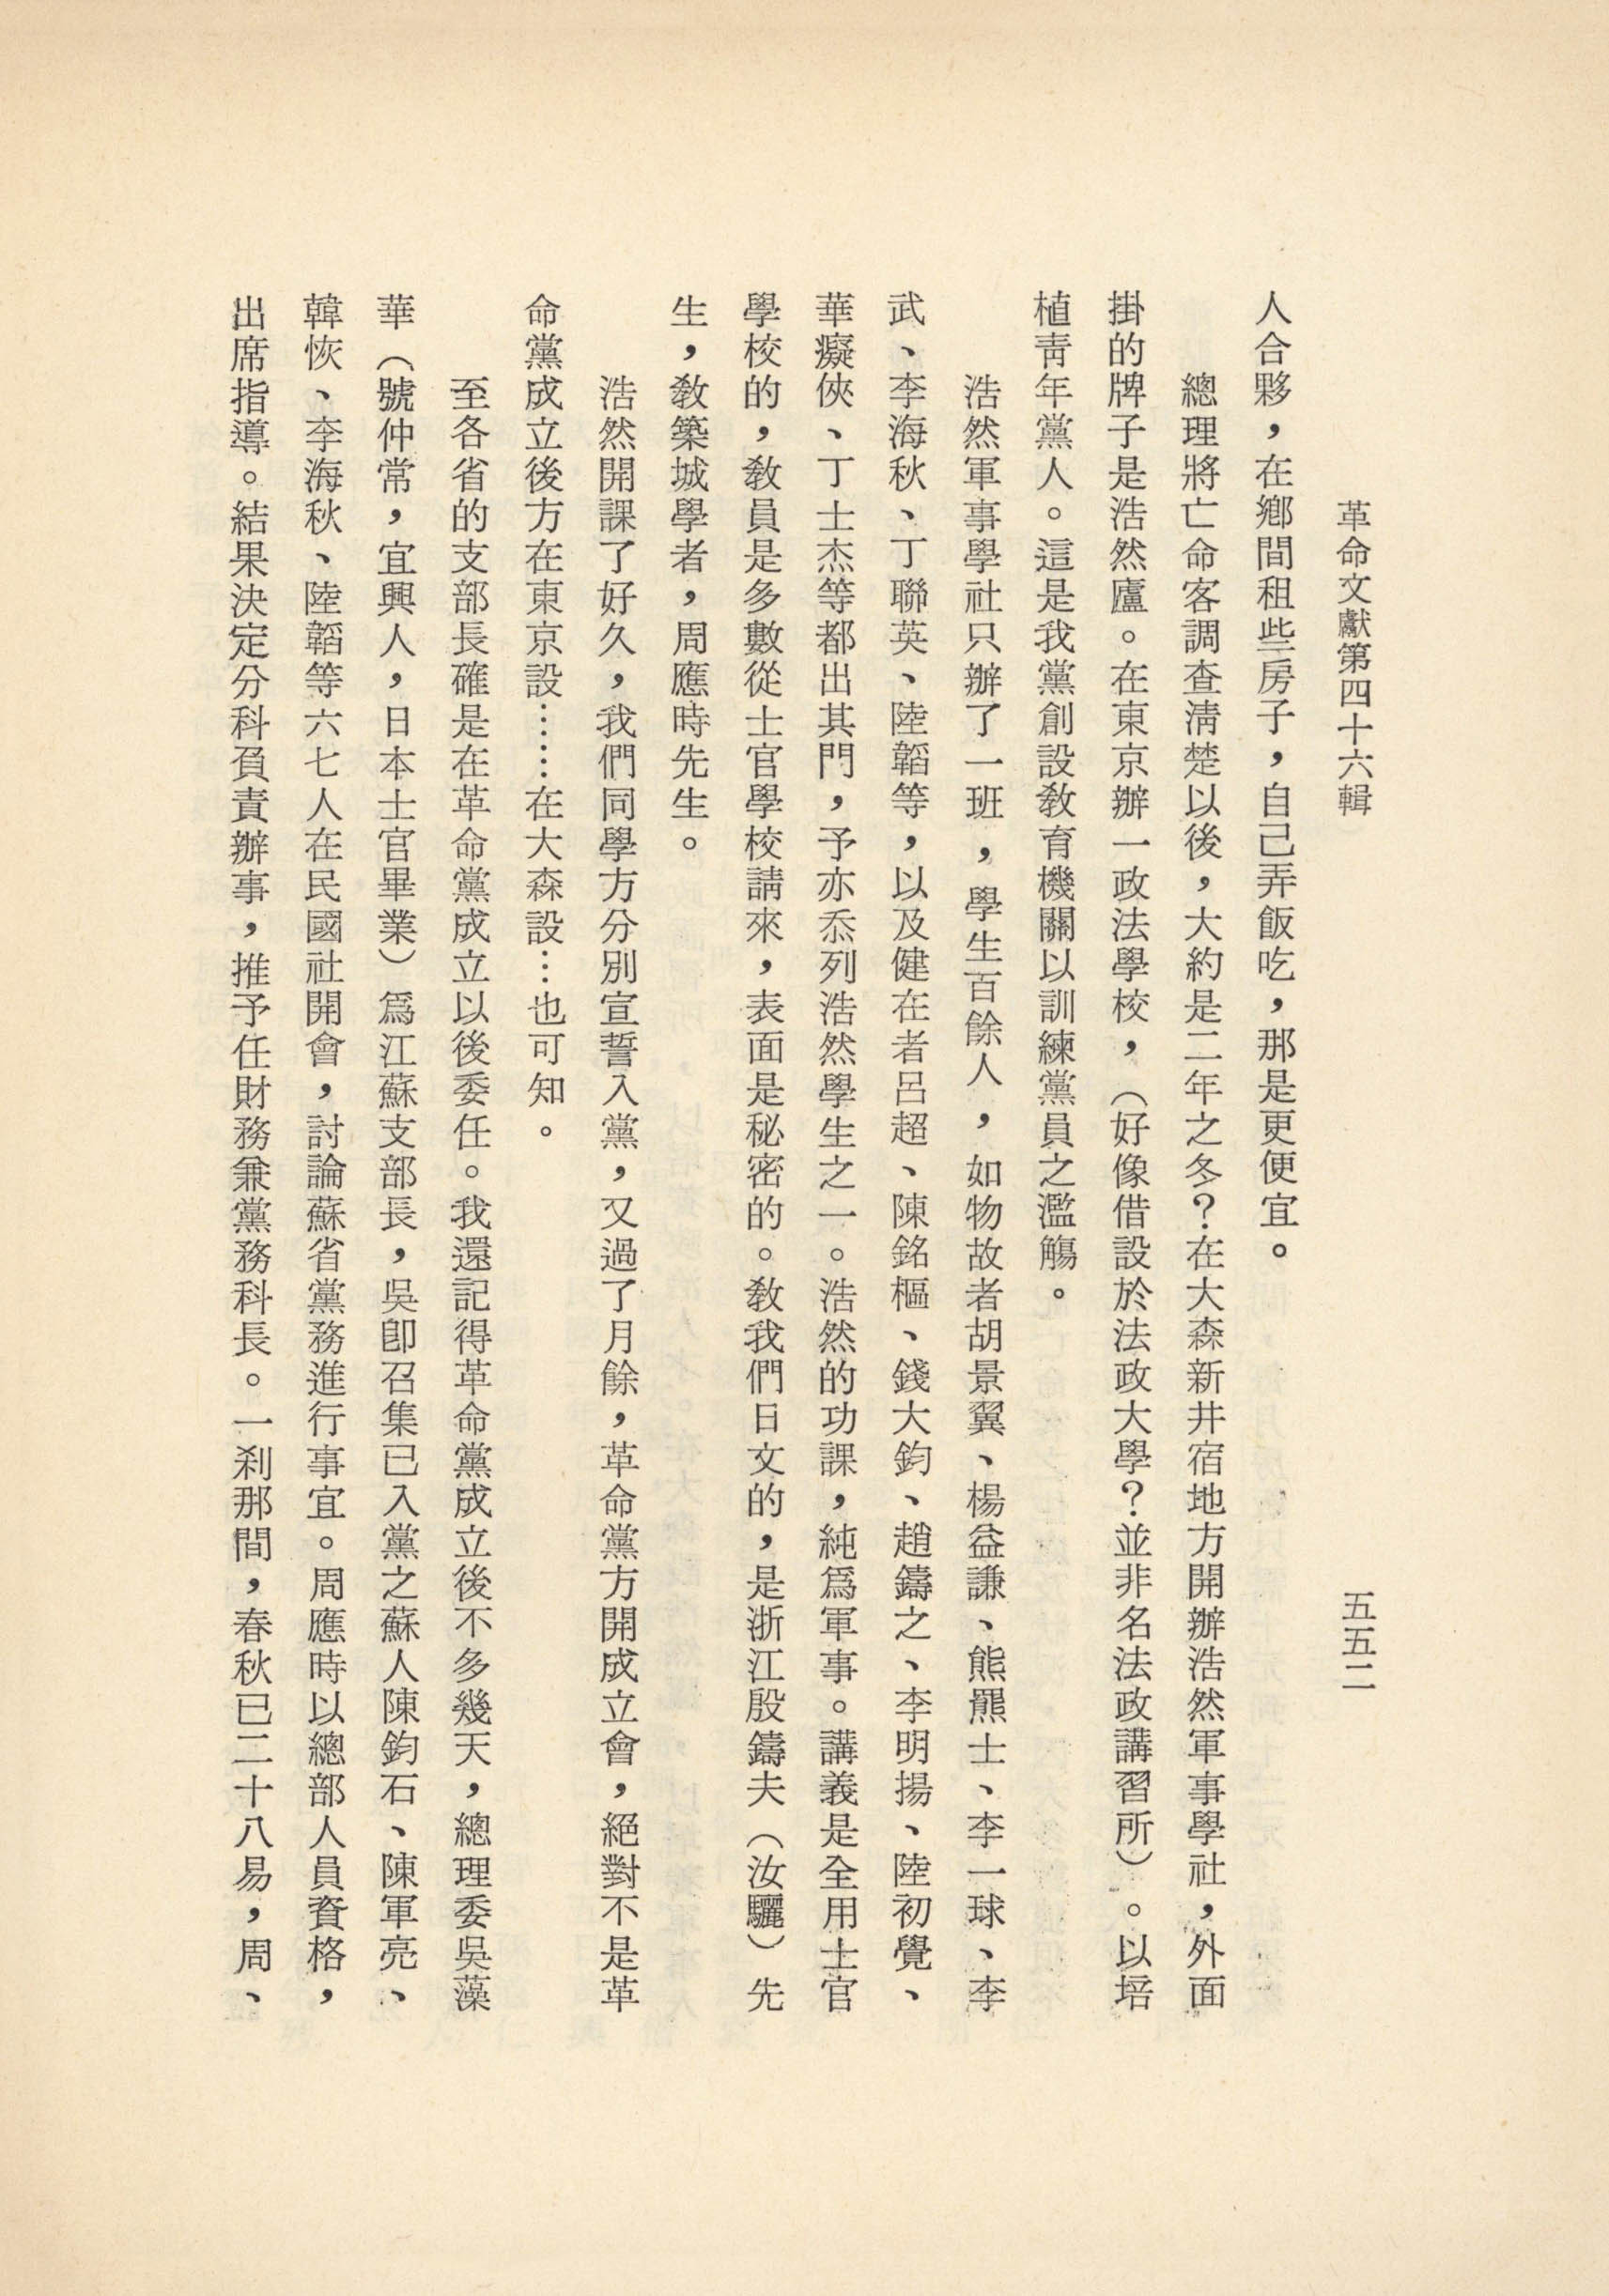 革命文獻第四十六輯
五五二
人合夥，在鄉間租些房子，自己弄飯吃，那是更便宜。
總理將亡命客調查淸楚以後，大約是二年之冬？在大森新井宿地方開辦浩然軍事學社，外面
掛的牌子是浩然廬。在東京辦一政法學校，（好像借設於法政大學？並非名法政講習所）。以培
植靑年黨人。這是我黨創設敎育機關以訓練黨員之濫觴。
浩然軍事學社只辦了一班，學生百餘人，如物故者胡景翼、楊益謙、熊羆士、李一球、李
武、李海秋、丁聯英、陸韜等，以及健在者呂超、陳銘樞、錢大鈞、趙鑄之、李明揚、陸初覺、
華癡俠、丁士杰等都出其門，予亦忝列浩然學生之一。浩然的功課，純爲軍事。講義是全用士官
學校的，敎員是多數從士官學校請來，表面是秘密的。敎我們日文的，是浙江殷鑄夫（汝驪）先
生，敎築城學者，周應時先生。
浩然開課了好久，我們同學方分別宣誓入黨，又過了月餘，革命黨方開成立會，絕對不是革
命黨成立後方在東京設……在大森設…也可知。
至各省的支部長確是在革命黨成立以後委任。我還記得革命黨成立後不多幾天，總理委吳藻
華（號仲常，宜興人，日本士官畢業）爲江蘇支部長，吳卽召集已入黨之蘇人陳鈞石、陳軍亮、
韓恢、李海秋、陸韜等六七人在民國社開會，討論蘇省黨務進行事宜。周應時以總部人員資格，
出席指導。結果決定分科負責辦事，推予任財務兼黨務科長。一刹那間，春秋已二十八易，周、